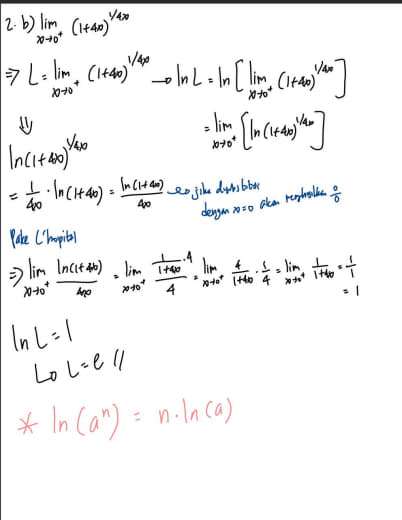 2. b) lim x→0⁺ (1+4x)^(1/4x)
⇒ L = lim x→0⁺ (1+4x)^(1/4x) → ln L = ln [lim x→0⁺ (1+4x)^(1/4x)]
⇓ = lim x→0⁺ [ln(1+4x)^(1/4x)]
ln(1+4x)^(1/4x)
= 1/4x · ln(1+4x) = ln(1+4x)/4x → jika
dengan x=0 akan 0/0
Pake L'hopital
⇒ lim x→0⁺ ln(1+4x)/4x = lim x→0⁺ (1/(1+4x) · 4)/4 = lim x→0⁺ 4/(1+4x) · 1/4 = lim x→0⁺ 1/(1+4x) = 1/1
= 1
ln L = 1
↳ L = e //
* ln(aⁿ) = n·ln(a)